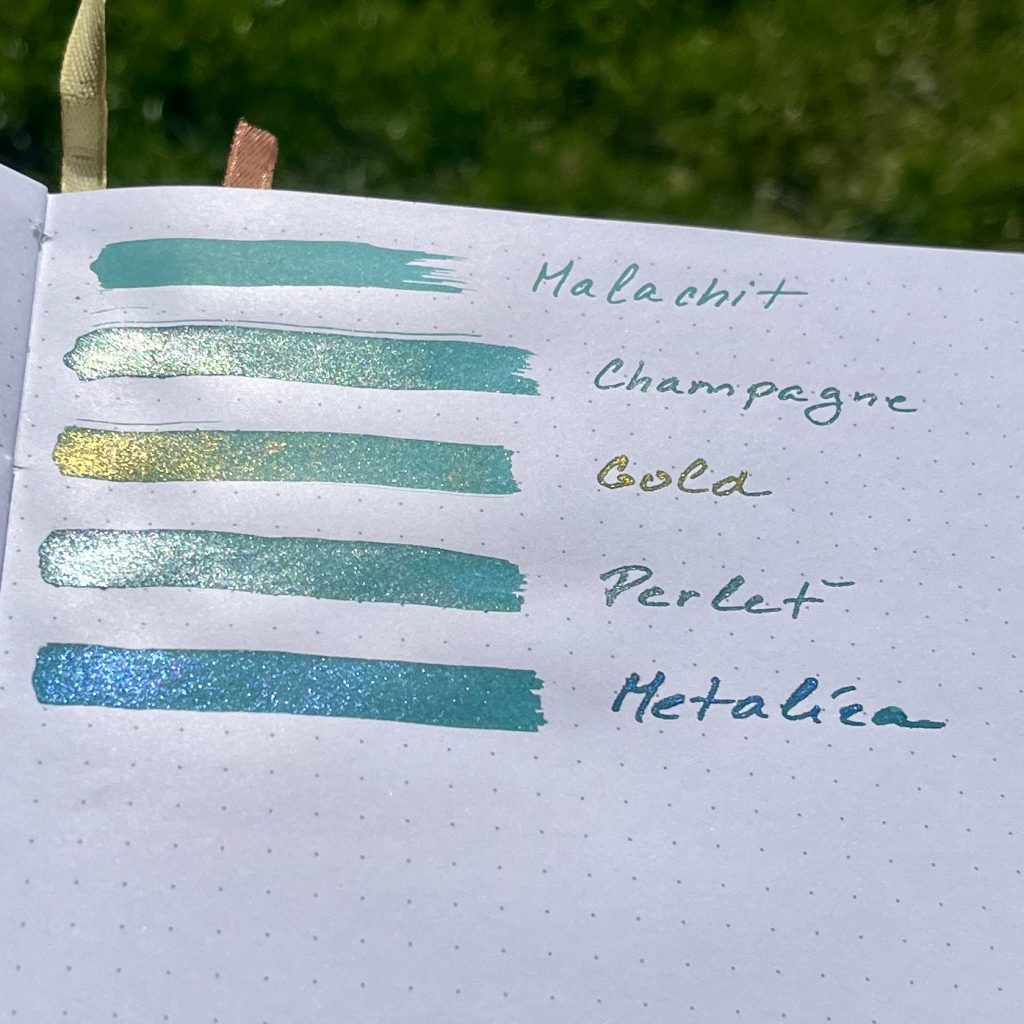 Malachit
Champagne
Gold
Perlet
Metalica